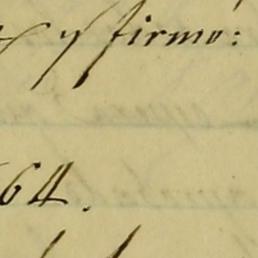 y firmo:
64.